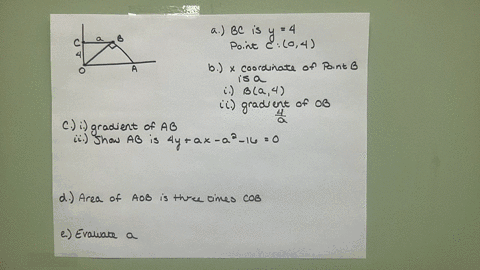 C a B
4
O A
a.) BC is y = 4
Point C: (0,4)
b.) x coordinate of Point B
is a
i.) B(a,4)
ii) gradient of OB
4/a
C.) i) gradient of AB
ii.) Show AB is 4y + ax - a² - 16 = 0
d.) Area of AOB is three times COB
e.) Evaluate a